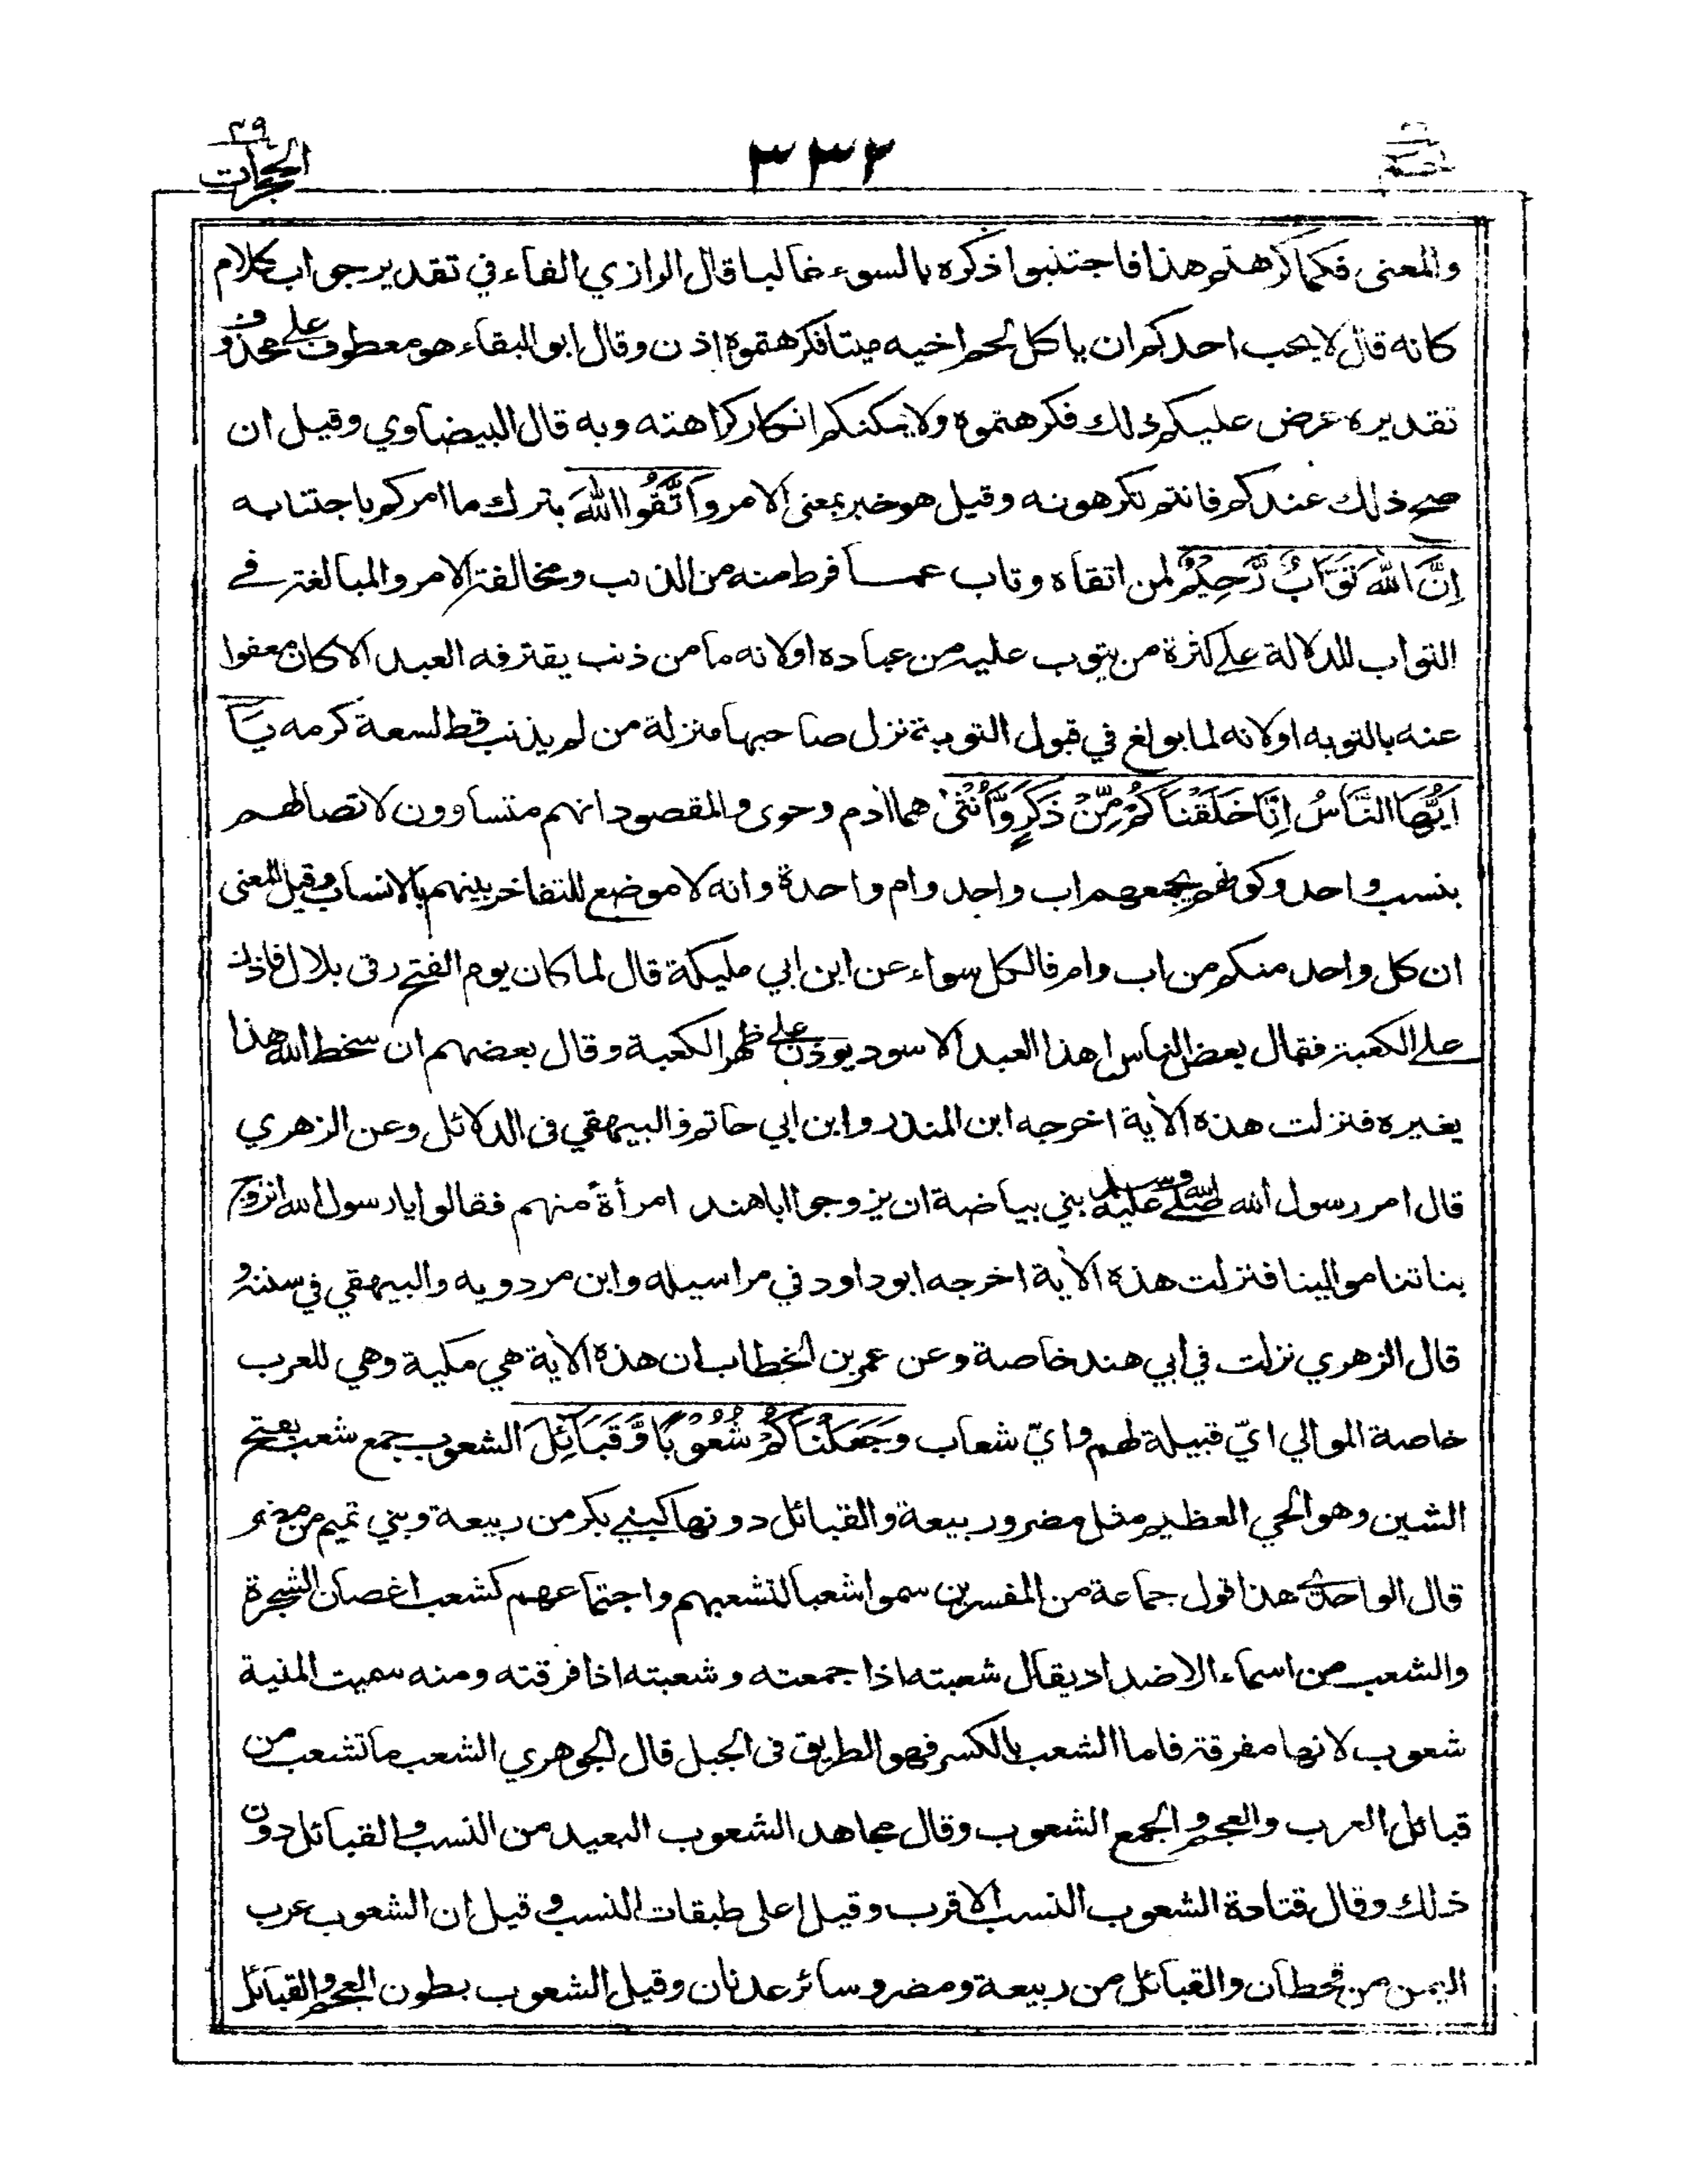 ٣٣٢
الحجرات ٤٩
والمعنى فكما كرهتم هذا فاجتنبوا ذكره بالسوء غائبا قال الرازي الفاء في تقدير جواب كلام
كانه قال لا يحب احدكم ان ياكل لحم اخيه ميتا فكرهتموه اذن وقال ابو البقاء هو معطوف على محذوف
تقديره عرض عليكم ذلك فكرهتموه ولا يمكنكم انكار كراهته وبه قال البيضاوي وقيل ان
صح ذلك عندكم فانتم تكرهونه وقيل هو خبر بمعنى الامر وَاتَّقُوا اللّٰهَ بترك ما امركم باجتنابه
اِنَّ اللّٰهَ تَوَّابٌ رَّحِيْمٌ لمن اتقاه وتاب عما فرط منه من الذنب ومخالفة الامر والمبالغة في
التواب للدلالة على كثرة من يتوب عليه من عباده اولانه ما من ذنب يقترفه العبد الا كان معفوا
عنه بالتوبه اولانه لما بولغ في قبول التوبة نزل صاحبها منزلة من لم يذنب قط لسعة كرمه يَا
اَيُّهَا النَّاسُ اِنَّا خَلَقْنَاكُمْ مِّنْ ذَكَرٍ وَّاُنْثٰى هما اٰدم وحوى والمقصود انهم متساوون لاتصالهم
بنسب واحد وكونهم يجمعهم اب واحد وام واحدة وانه لا موضع للتفاخر بينهم بالانساب وقيل المعنى
ان كل واحد منكم من اب وام فالكل سواء عن ابن ابي مليكة قال لما كان يوم الفتح رقى بلال فاذن
على الكعبة فقال بعض الناس اهذا العبد الاسود يوذن على ظهر الكعبة وقال بعضهم ان سخط الله هذا
يغيره فنزلت هذه الأية اخرجه ابن المنذر وابن ابي حاتم والبيهقي فى الدلائل وعن الزهري
قال امر رسول الله صلى الله عليه وسلم بني بياضة ان يزوجوا ابا هند امرأة منهم فقالوا يا رسول الله انزوج
بناتنا موالينا فنزلت هذه الأية اخرجه ابو داود في مراسيله وابن مردويه والبيهقي في سننه و
قال الزهري نزلت في ابي هند خاصة وعن عمر بن الخطاب ان هذه الأية هي مكية وهي للعرب
خاصة الموالي ايّ قبيلة لهم وايّ شعاب وَجَعَلْنَاكُمْ شُعُوْبًا وَّقَبَائِلَ الشعوب جمع شعب بفتح
الشين وهو الحي العظيم مثل مضر وربيعة والقبائل دونها كبني بكر من ربيعة وبني تميم من مضر
قال الواحدي هذا قول جماعة من المفسرين سموا شعبا لتشعبهم واجتماعهم كشعب اغصان الشجرة
والشعب من اسماء الاضداد يقال شعبته اذا جمعته وشعبته اذا فرقته ومنه سميت المنية
شعوب لانها مفرقة فاما الشعب بالكسر فهو الطريق فى الجبل قال الجوهري الشعب ما تشعب من
قبائل العرب والعجم والجمع الشعوب وقال مجاهد الشعوب البعيد من النسب والقبائل دون
ذلك وقال قتادة الشعوب النسب الاقرب وقيل اعلى طبقات النسب وقيل ان الشعوب عرب
اليمن من قحطان والقبائل من ربيعة ومضر وسائر عدنان وقيل الشعوب بطون العجم والقبائل